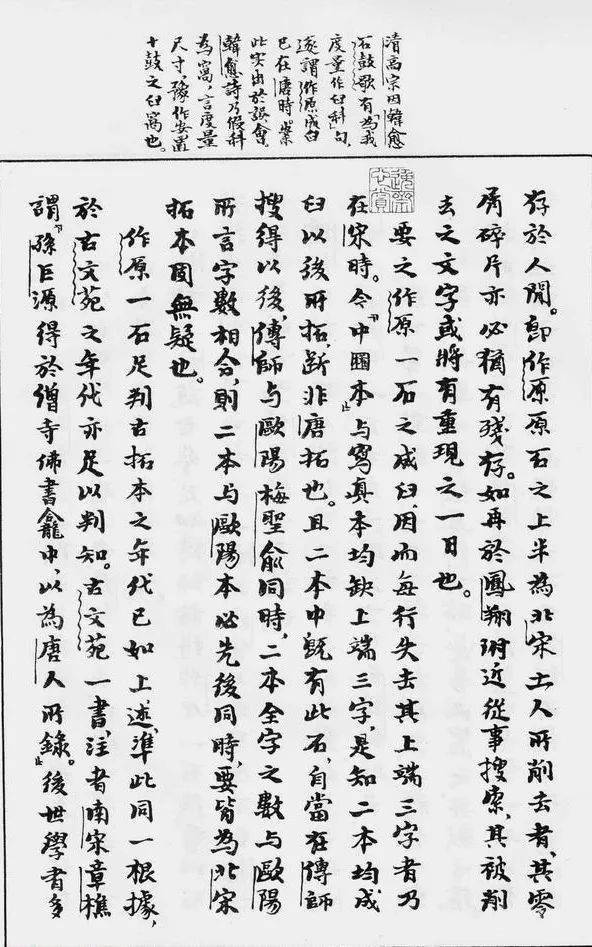 清高宗因韓愈
石鼓歌有為我
度量作臼科」句,
遂謂作原成臼
已在唐時。案
此實出於誤會。
韓愈詩乃假科
為窩,言度量
尺寸,豫作安置
十鼓之臼窩也。
存於人間。即作原原石之上半為北宋土人所削去者,其零
屑碎片亦必猶有殘存。如再於鳳翔附近從事搜索,其被削
去之文字或將有重現之一日也。
要之作原一石之成臼,因而每行失去其上端三字者乃
在宋時。今「中國本」與寫真本均缺上端三字,是知二本均成
臼以後所拓,斷非唐拓也。且二本中既有此石,自當在傅師
搜得以後,傅師與歐陽梅聖俞同時,二本全字之數與歐陽
所言字數相合,則二本與歐陽本必先後同時,要皆為北宋
拓本固無疑也。
作原一石足判古拓本之年代已如上述,準此同一根據,
於古文苑之年代亦足以判知。古文苑一書,注者南宋章樵
謂「孫巨源得於僧寺佛書龕中,以為唐人所錄。」後世學者多